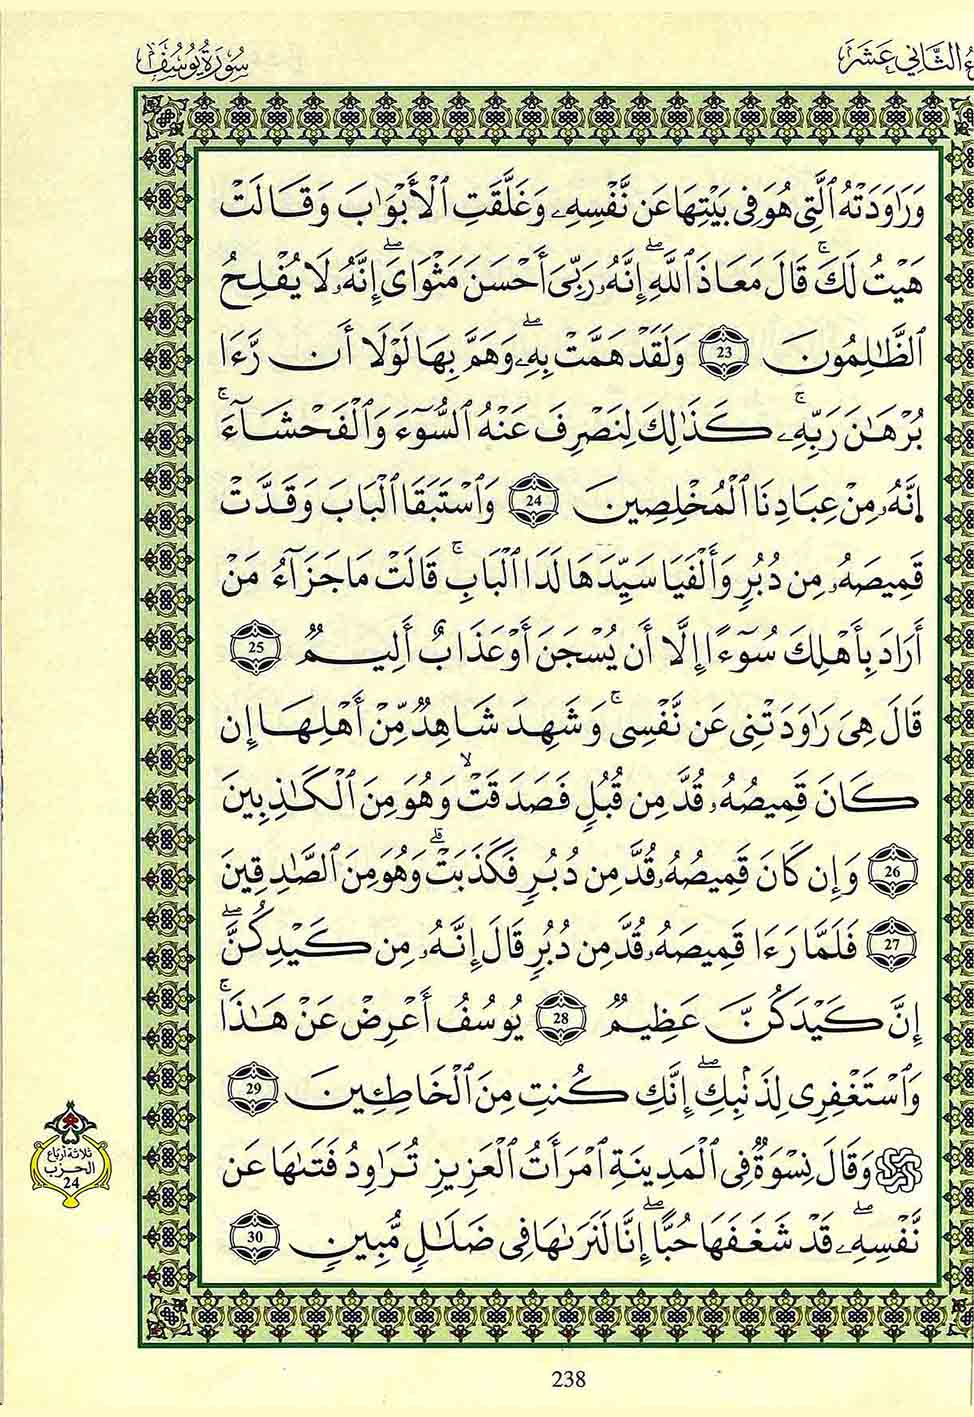 الثَّانِي عَشَرَ
سُورَةُ يُوسُفَ
وَرَاوَدَتْهُ الَّتِى هُوَ فِى بَيْتِهَا عَن نَّفْسِهِۦ وَغَلَّقَتِ الْأَبْوَٰبَ وَقَالَتْ
هَيْتُ لَكَ ۚ قَالَ مَعَاذَ اللَّهِ ۖ إِنَّهُۥ رَبِّىَ أَحْسَنَ مَثْوَاىَ ۖ إِنَّهُۥ لَا يُفْلِحُ
الظَّٰلِمُونَ 23 وَلَقَدْ هَمَّتْ بِهِۦ ۖ وَهَمَّ بِهَا لَوْلَا أَن رَّءَا
بُرْهَٰنَ رَبِّهِۦ ۚ كَذَٰلِكَ لِنَصْرِفَ عَنْهُ السُّوٓءَ وَالْفَحْشَآءَ ۚ
إِنَّهُۥ مِنْ عِبَادِنَا الْمُخْلِصِينَ 24 وَاسْتَبَقَا الْبَابَ وَقَدَّتْ
قَمِيصَهُۥ مِن دُبُرٍ وَأَلْفَيَا سَيِّدَهَا لَدَا الْبَابِ ۚ قَالَتْ مَا جَزَآءُ مَنْ
أَرَادَ بِأَهْلِكَ سُوٓءًا إِلَّا أَن يُسْجَنَ أَوْ عَذَابٌ أَلِيمٌ 25
قَالَ هِىَ رَٰوَدَتْنِى عَن نَّفْسِى ۚ وَشَهِدَ شَاهِدٌ مِّنْ أَهْلِهَا إِن
كَانَ قَمِيصُهُۥ قُدَّ مِن قُبُلٍ فَصَدَقَتْ ۙ وَهُوَ مِنَ الْكَٰذِبِينَ
26 وَإِن كَانَ قَمِيصُهُۥ قُدَّ مِن دُبُرٍ فَكَذَبَتْ ۗ وَهُوَ مِنَ الصَّٰدِقِينَ
27 فَلَمَّا رَءَا قَمِيصَهُۥ قُدَّ مِن دُبُرٍ قَالَ إِنَّهُۥ مِن كَيْدِكُنَّ ۖ
إِنَّ كَيْدَكُنَّ عَظِيمٌ 28 يُوسُفُ أَعْرِضْ عَنْ هَٰذَا ۚ
وَاسْتَغْفِرِى لِذَنۢبِكِ ۖ إِنَّكِ كُنتِ مِنَ الْخَاطِئِينَ 29
وَقَالَ نِسْوَةٌ فِى الْمَدِينَةِ امْرَأَتُ الْعَزِيزِ تُرَاوِدُ فَتَىٰهَا عَن
نَّفْسِهِۦ ۖ قَدْ شَغَفَهَا حُبًّا ۖ إِنَّا لَنَرَىٰهَا فِى ضَلَٰلٍ مُّبِينٍ 30
ثلاثة أرباع
الحزب
24
238